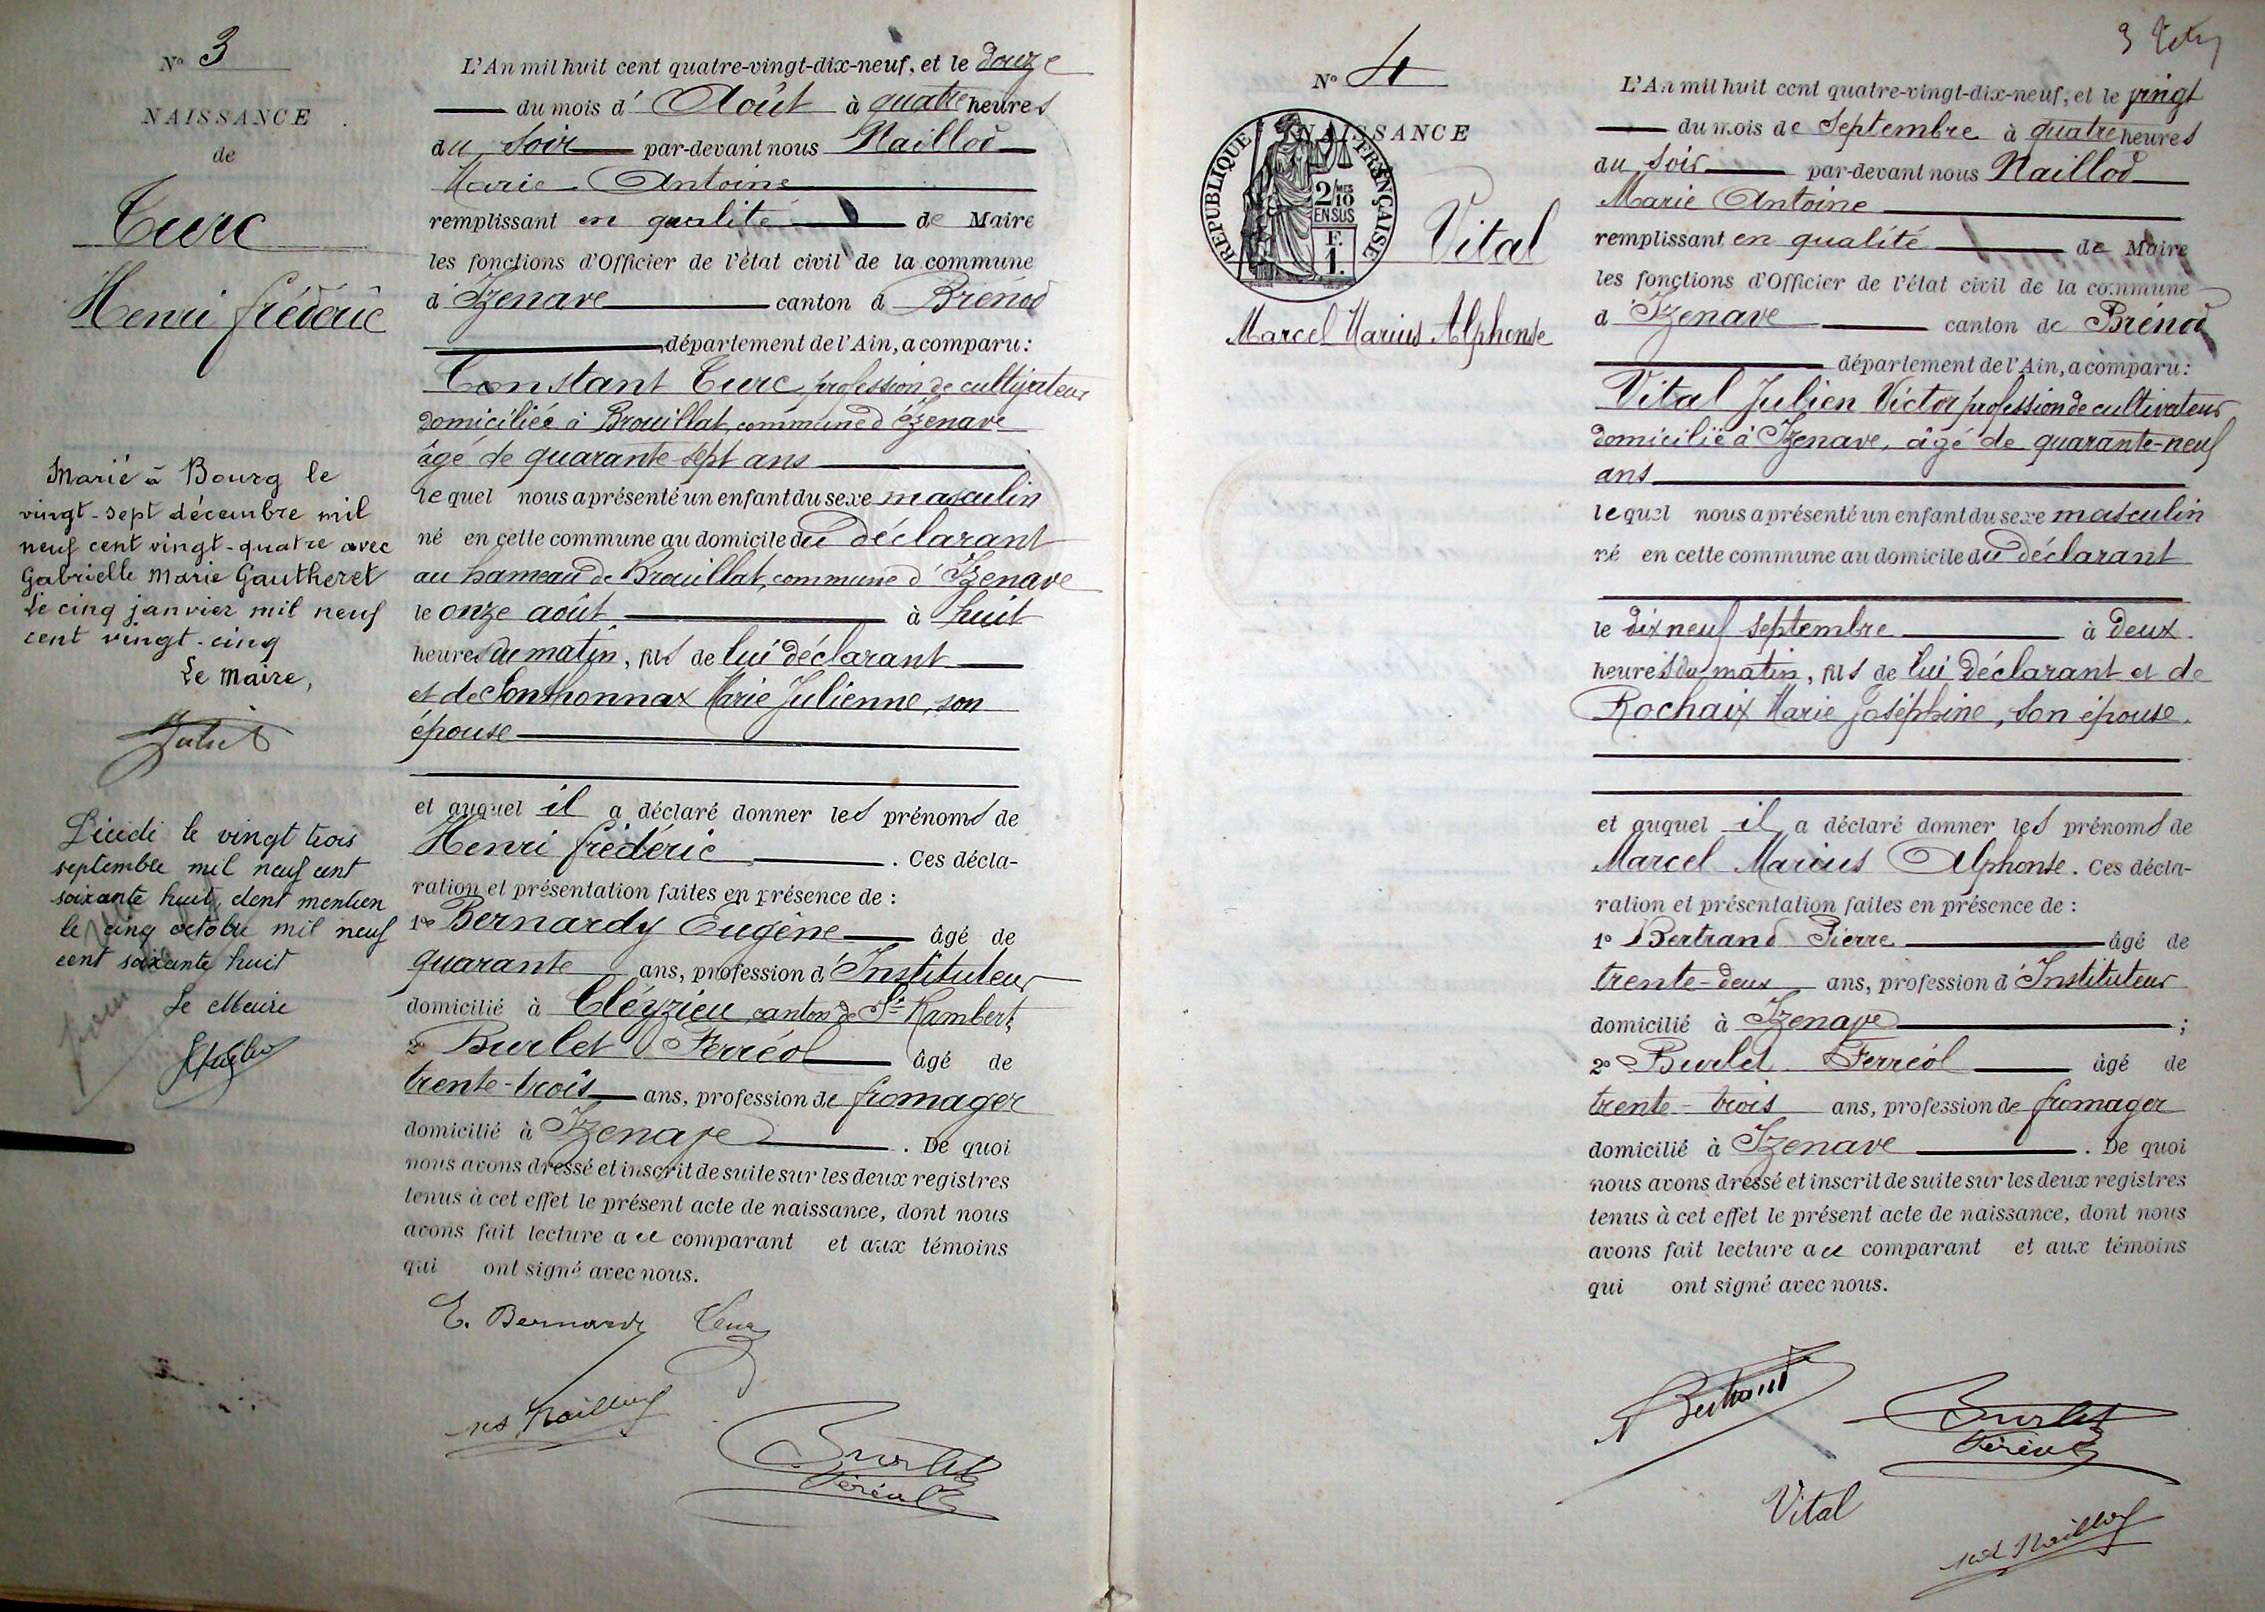 N° 3
NAISSANCE
de
Turc
Henri frédéric
Marié à Bourg le
vingt-sept décembre mil
neuf cent vingt-quatre avec
Gabrielle Marie Gautheret
Le cinq janvier mil neuf
cent vingt-cinq
Le Maire,
Décédé le vingt trois
septembre mil neuf cent
soixante huit, dont mention
le cinq octobre mil neuf
cent soixante huit
Le Maire
L'An mil huit cent quatre-vingt-dix-neuf, et le douze
du mois d' Août à quatre heures
du soir par-devant nous Naillod
Marie Antoine
remplissant en qualité de Maire
les fonctions d'Officier de l'état civil de la commune
d' Izenave canton d Brénod
, département de l'Ain, a comparu :
Constant Turc, profession de cultivateur
domiciliée à Brouillat, commune d'Izenave
âgé de quarante-sept ans
lequel nous a présenté un enfant du sexe masculin
né en cette commune au domicile du déclarant
au hameau de Brouillat, commune d'Izenave
le onze août à huit
heures du matin, fils de lui déclarant
et de Sonthonnax Marie Julienne, son
épouse
et auquel il a déclaré donner les prénoms de
Henri frédéric . Ces décla-
ration et présentation faites en présence de :
1° Bernardy Eugène âgé de
quarante ans, profession d'Instituteur
domicilié à Cléyzieu, canton de St Rambert;
2° Burlet Ferréol âgé de
trente-trois ans, profession de fromager
domicilié à Izenave . De quoi
nous avons dressé et inscrit de suite sur les deux registres
tenus à cet effet le présent acte de naissance, dont nous
avons fait lecture au comparant et aux témoins
qui ont signé avec nous.
E. Bernardy Turc
Naillod
Burlet
Féréol
3
N° 4
NAISSANCE
RÉPUBLIQUE FRANÇAISE
2/10 MES
EN SUS
F.
1.
Vital
Marcel Marius Alphonse
L'An mil huit cent quatre-vingt-dix-neuf, et le vingt
du mois de Septembre à quatre heures
du soir par-devant nous Naillod
Marie Antoine
remplissant en qualité de Maire
les fonctions d'Officier de l'état civil de la commune
d' Izenave canton de Brénod
département de l'Ain, a comparu :
Vital Julien Victor, profession de cultivateur
domicilié à Izenave, âgé de quarante-neuf
ans
lequel nous a présenté un enfant du sexe masculin
né en cette commune au domicile du déclarant
le dix neuf septembre à deux
heures du matin, fils de lui déclarant et de
Rochaix Marie Joséphine, son épouse.
et auquel il a déclaré donner les prénoms de
Marcel Marius Alphonse. Ces décla-
ration et présentation faites en présence de :
1° Bertrand Pierre âgé de
trente-deux ans, profession d'Instituteur
domicilié à Izenave ;
2° Burlet Ferréol âgé de
trente-trois ans, profession de fromager
domicilié à Izenave . De quoi
nous avons dressé et inscrit de suite sur les deux registres
tenus à cet effet le présent acte de naissance, dont nous
avons fait lecture au comparant et aux témoins
qui ont signé avec nous.
Bertrand
Burlet
Féréol
Vital
Naillod